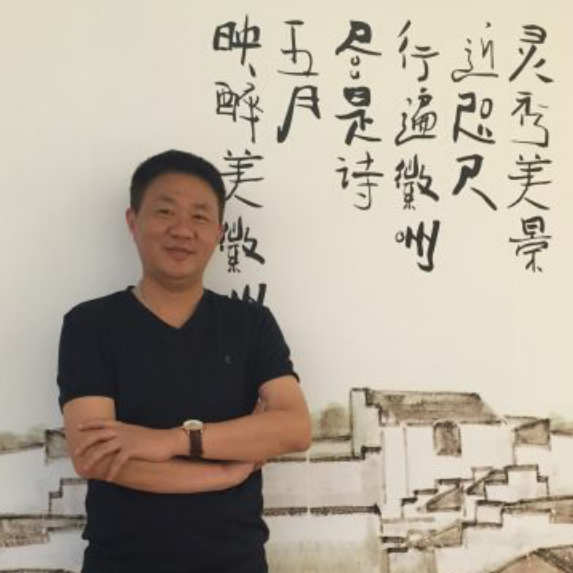 灵秀美景
近咫尺
行遍徽州
尽是诗
五月
映醉美徽州